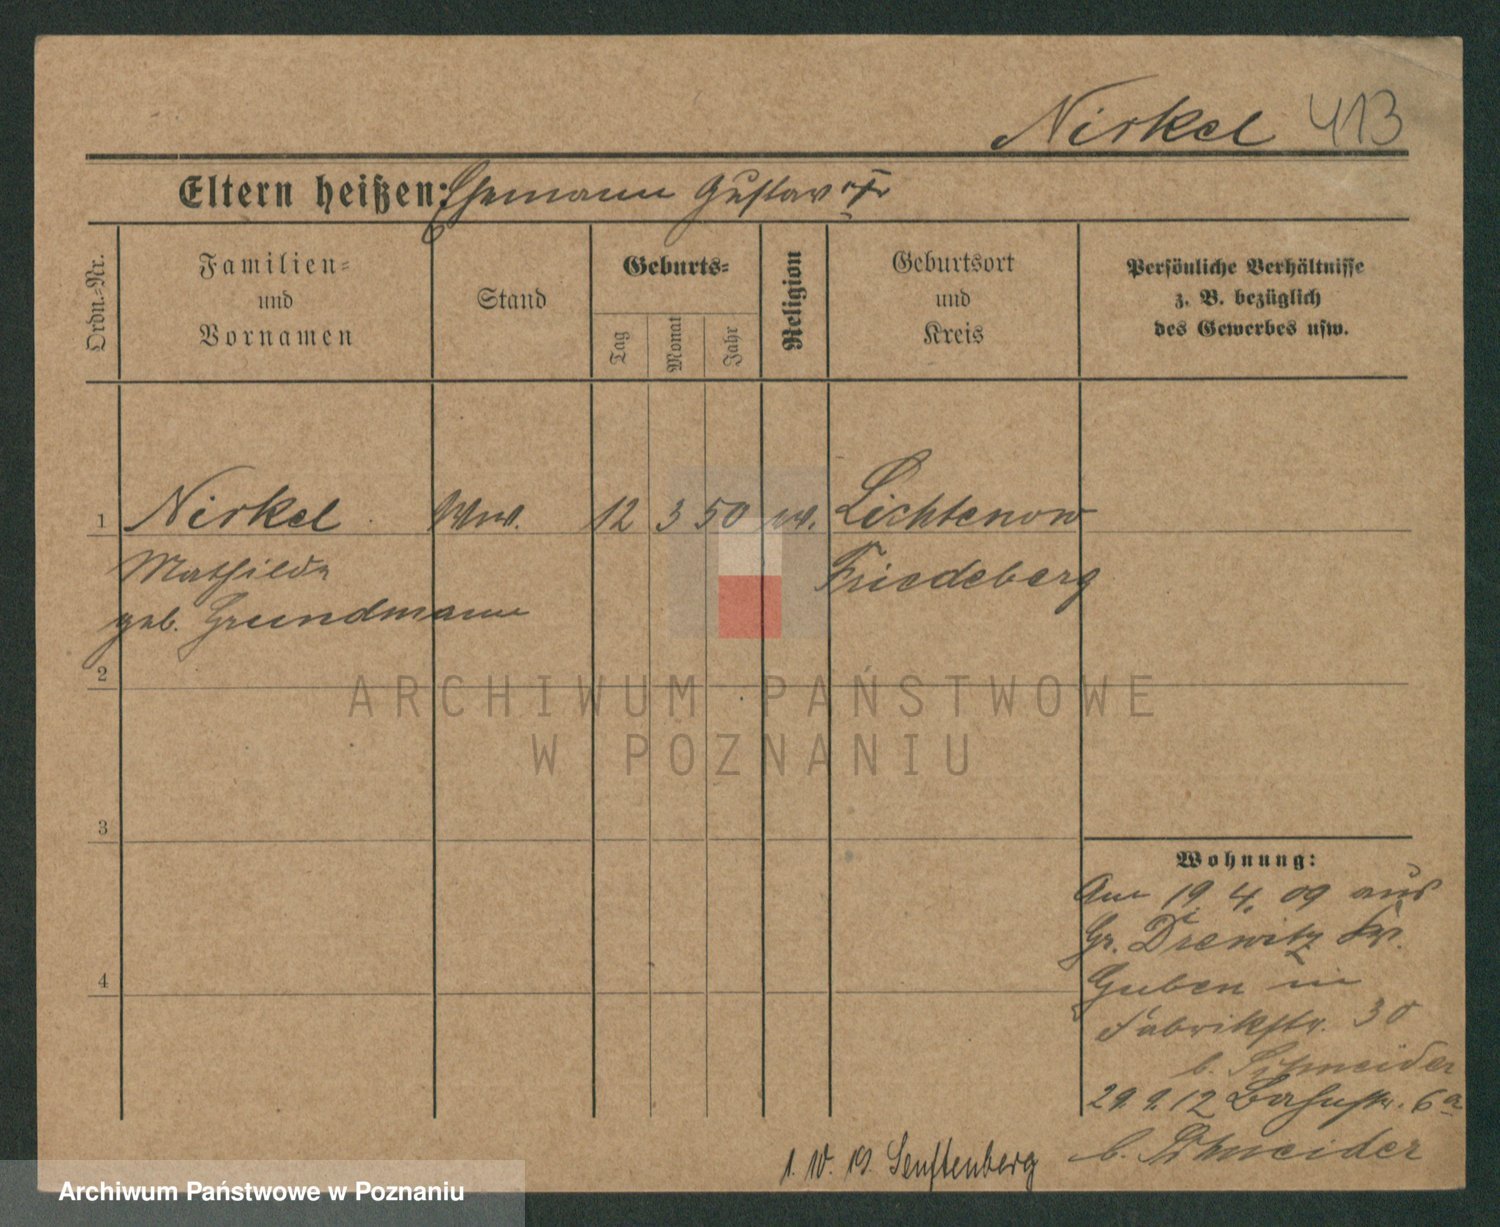 Nirkel 413
Eltern heißen: Ehemann Gustav
Ordn.-Nr.
Familien-
und
Vornamen
Stand
Geburts-
Tag
Monat
Jahr
Religion
Geburtsort
und
Kreis
Persönliche Verhältnisse
z. B. bezüglich
des Gewerbes usw.
1 Nirkel Wwe. 12 3 50 ev. Lichtenow
Mathilde Friedeberg
geb. Grundmann
2
ARCHIWUM PAŃSTWOWE
W POZNANIU
3
Wohnung:
Am 19. 4. 09 aus
Gr. Drewitz Kr.
4
Guben in
Fabrikstr. 30
b. Schneider
29. 9. 12 Bahnstr. 6a
b. Schneider
1. 10. 19. Senftenberg
Archiwum Państwowe w Poznaniu